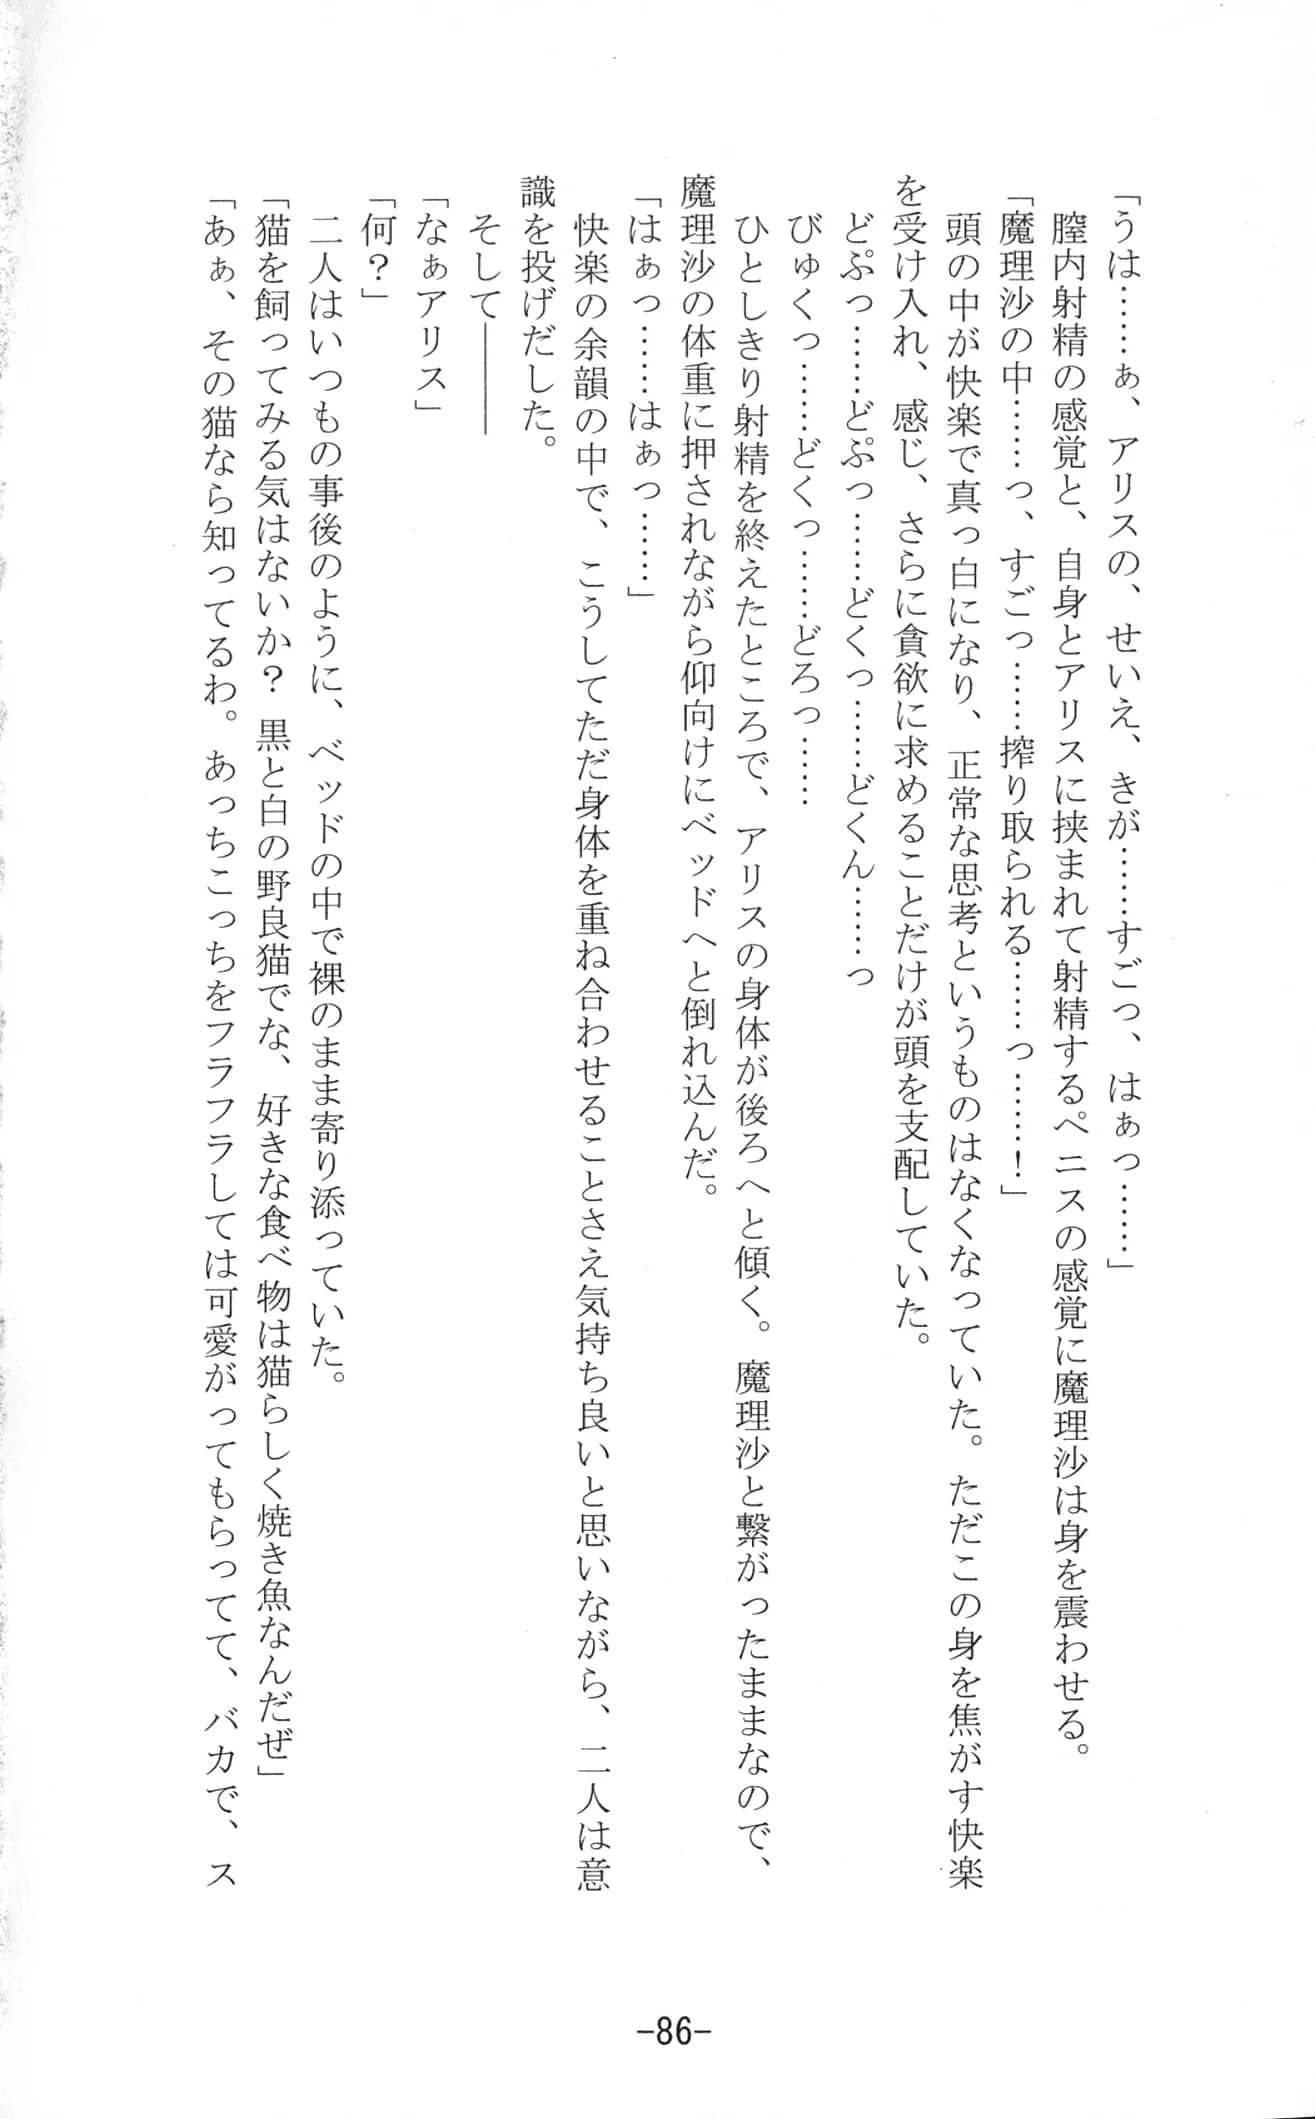 「うは……ぁ、アリスの、せいえ、きが……すごっ、はぁっ……」
膣内射精の感覚と、自身とアリスに挟まれて射精するペニスの感覚に魔理沙は身を震わせる。
「魔理沙の中……っ、すごっ……搾り取られる……っ……！」
頭の中が快楽で真っ白になり、正常な思考というものはなくなっていた。ただこの身を焦がす快楽
を受け入れ、感じ、さらに貪欲に求めることだけが頭を支配していた。
どぷっ……どぷっ……どくっ……どくん……っ
びゅくっ……どくっ……どろっ……
ひとしきり射精を終えたところで、アリスの身体が後ろへと傾く。魔理沙と繋がったままなので、
魔理沙の体重に押されながら仰向けにベッドへと倒れ込んだ。
「はぁっ……はぁっ……」
快楽の余韻の中で、こうしてただ身体を重ね合わせることさえ気持ち良いと思いながら、二人は意
識を投げだした。
そして―――
「なぁアリス」
「何？」
二人はいつもの事後のように、ベッドの中で裸のまま寄り添っていた。
「猫を飼ってみる気はないか？ 黒と白の野良猫でな、好きな食べ物は猫らしく焼き魚なんだぜ」
「あぁ、その猫なら知ってるわ。あっちこっちをフラフラしては可愛がってもらってて、バカで、ス
-86-